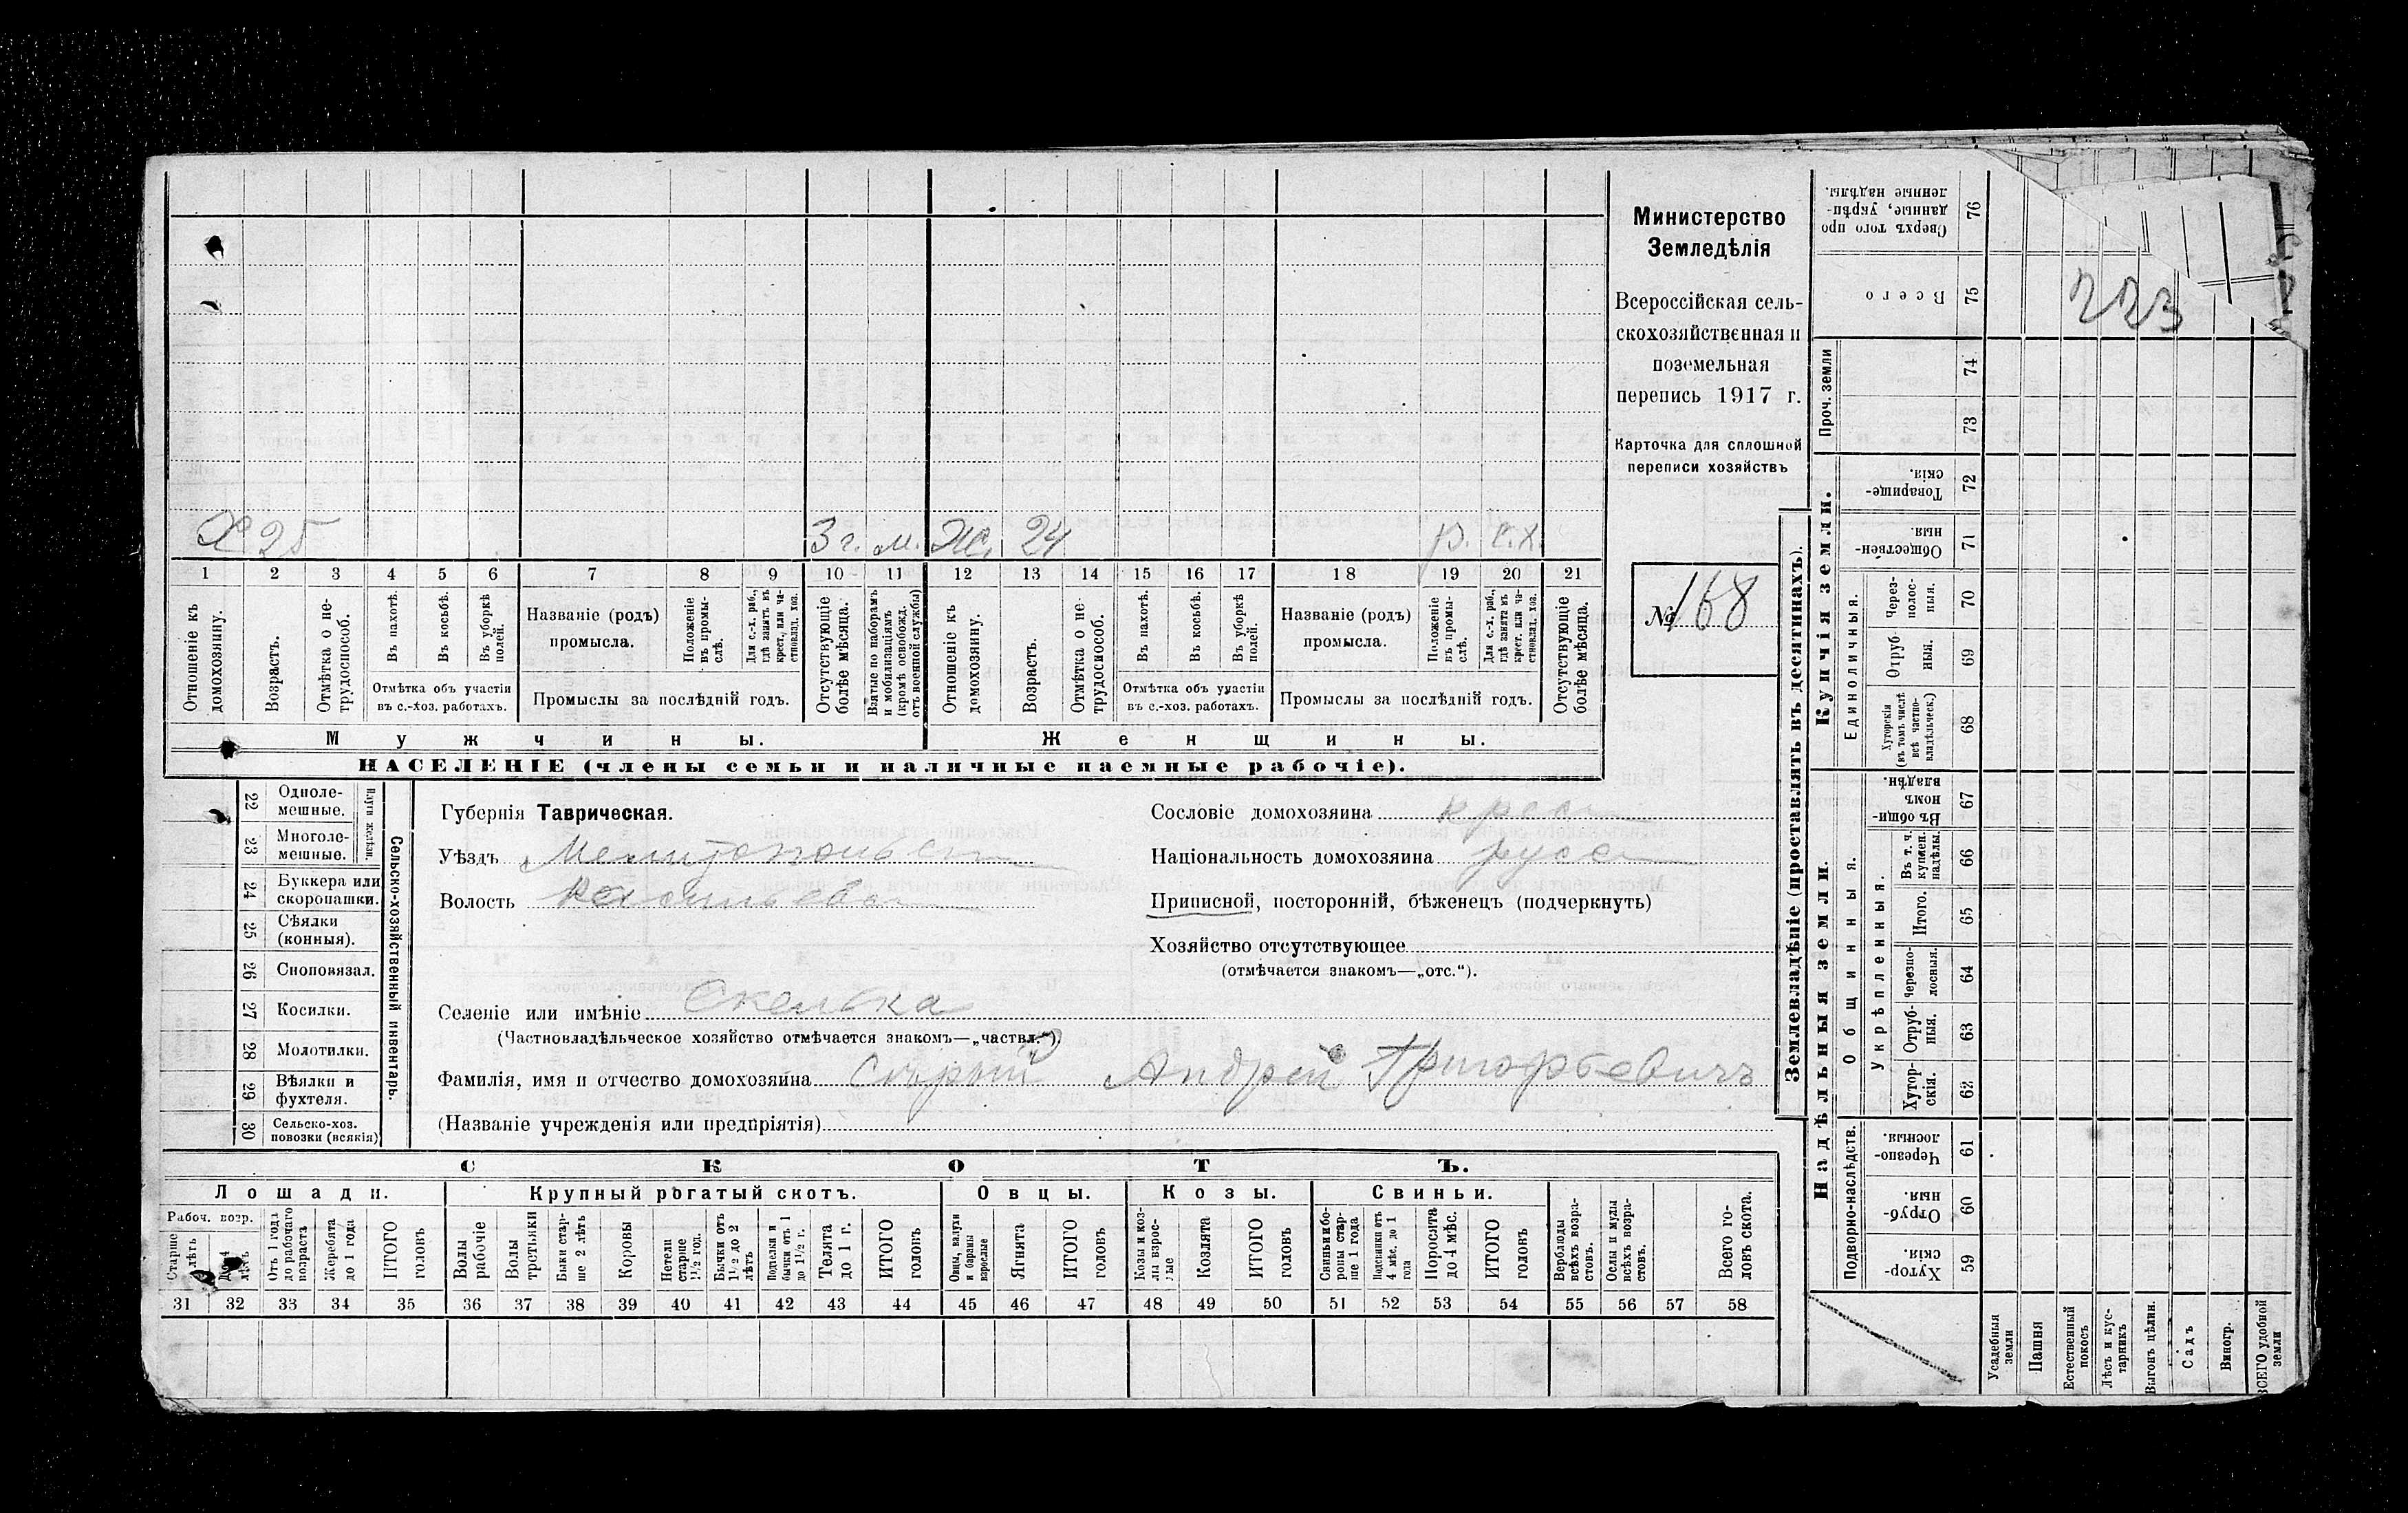 Министерство
Земледѣлія
Всероссійская сель-
скохозяйственная и
поземельная
перепись 1917 г.
Карточка для сплошной
переписи хозяйствъ
№ 168
223
Х 25 3 г. м. Ж. 24 р. с.х.
1 2 3 4 5 6 7 8 9 10 11 12 13 14 15 16 17 18 19 20 21
Отношеніе къ домохозяину.
Возрастъ.
Отмѣтка о не-трудоспособ.
Въ пахотѣ.
Въ косьбѣ.
Въ уборкѣ полей.
Отмѣтка объ участіи
въ с.-хоз. работахъ.
Названіе (родъ)
промысла.
Положеніе въ промы-слѣ.
Для с.-х. раб., гдѣ занятъ въ крест. или ча-стновлад. хоз.
Промыслы за послѣдній годъ.
Отсутствующіе болѣе мѣсяца.
Взятые по наборамъ и мобилизаціямъ (кромѣ освобожд. отъ военной службы)
Отношеніе къ домохозяину.
Возрастъ.
Отмѣтка о не-трудоспособ.
Въ пахотѣ.
Въ косьбѣ.
Въ уборкѣ полей.
Отмѣтка объ участіи
въ с.-хоз. работахъ.
Названіе (родъ)
промысла.
Положеніе въ промы-слѣ.
Для с.-х. раб., гдѣ занятъ въ крест. или ча-стновлад. хоз.
Промыслы за послѣдній годъ.
Отсутствующіе болѣе мѣсяца.
Мужчины. Женщины.
НАСЕЛЕНІЕ (члены семьи и наличные наемные рабочіе).
22 Одноле-мешные.
23 Многоле-мешные.
Плуги желѣзн.
24 Буккера или скоропашки.
25 Сѣялки (конныя).
26 Сноповязал.
27 Косилки.
28 Молотилки.
29 Вѣялки и фухтеля.
30 Сельско-хоз. повозки (всякія)
Сельско-хозяйственный инвентарь.
Губернія Таврическая.
Уѣздъ Мелитопольск
Волость Васильевск
Селеніе или имѣніе Скелька
(Частновладѣльческое хозяйство отмѣчается знакомъ—„частвл.“).
Фамилія, имя и отчество домохозяина Сѣрый Андрей Григорьевичъ
(Названіе учрежденія или предпріятія)
Сословіе домохозяина крест
Національность домохозяина русск
Приписной, посторонній, бѣженецъ (подчеркнуть)
Хозяйство отсутствующее
(отмѣчается знакомъ—„отс.“).
СКОТЪ.
Лошади. Крупный рогатый скотъ. Овцы. Козы. Свиньи.
Рабоч. возр.
Старше 4 лѣтъ
До 4 лѣтъ
Отъ 1 года до рабочаго возраста
Жеребята до 1 года
ИТОГО головъ
Волы рабочіе
Волы третьяки
Быки стар-ше 2 лѣтъ
Коровы
Нетели старше 1½ год.
Бычки отъ 1½ до 2 лѣтъ
Подтелки и бычки отъ 1 до 1½ г.
Телята до 1 г.
ИТОГО головъ
Овцы, валухи и бараны взрослые
Ягнята
ИТОГО головъ
Козы и коз-лы взрос-лые
Козлята
ИТОГО головъ
Свиньи и бо-ровы стар-ше 1 года
Подсвинки отъ 4 мѣс. до 1 года
Поросята до 4 мѣс.
ИТОГО головъ
Верблюды всѣхъ возра-стовъ.
Ослы и мулы всѣхъ возра-стовъ.
Всего го-ловъ скота.
31 32 33 34 35 36 37 38 39 40 41 42 43 44 45 46 47 48 49 50 51 52 53 54 55 56 57 58
Землевладѣніе (проставлять въ десятинахъ).
Надѣльныя земли. Купчія земли.
Проч. земли
Подворно-наслѣдств.
Общинныя.
Укрѣпленныя.
Единоличныя.
Сверхъ того про-данные, укрѣп-ленные надѣлы. 76
Всего 75
74
73
Товарище-скія. 72
Обществен-ныя. 71
Через-полос-ныя. 70
Отруб-ныя. 69
Хуторскія (въ томъ числѣ всѣ частно-владѣльческ.) 68
Въ общи-номъ владѣн. 67
Въ т. ч. куплен. надѣлы. 66
Итого. 65
Черезпо-лосныя. 64
Отруб-ныя. 63
Хутор-скія. 62
Черезпо-лосныя. 61
Отруб-ныя 60
Хутор-скія. 59
Усадебныя земли
Пашня
Естественный покосъ
Лѣсъ и кус-тарникъ
Выгонъ цѣлин.
Садъ
Виногр.
ВСЕГО удобной земли